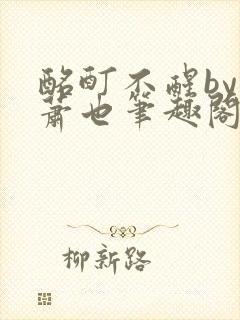 酩酊不醒by
萧也笔趣阁
柳新路